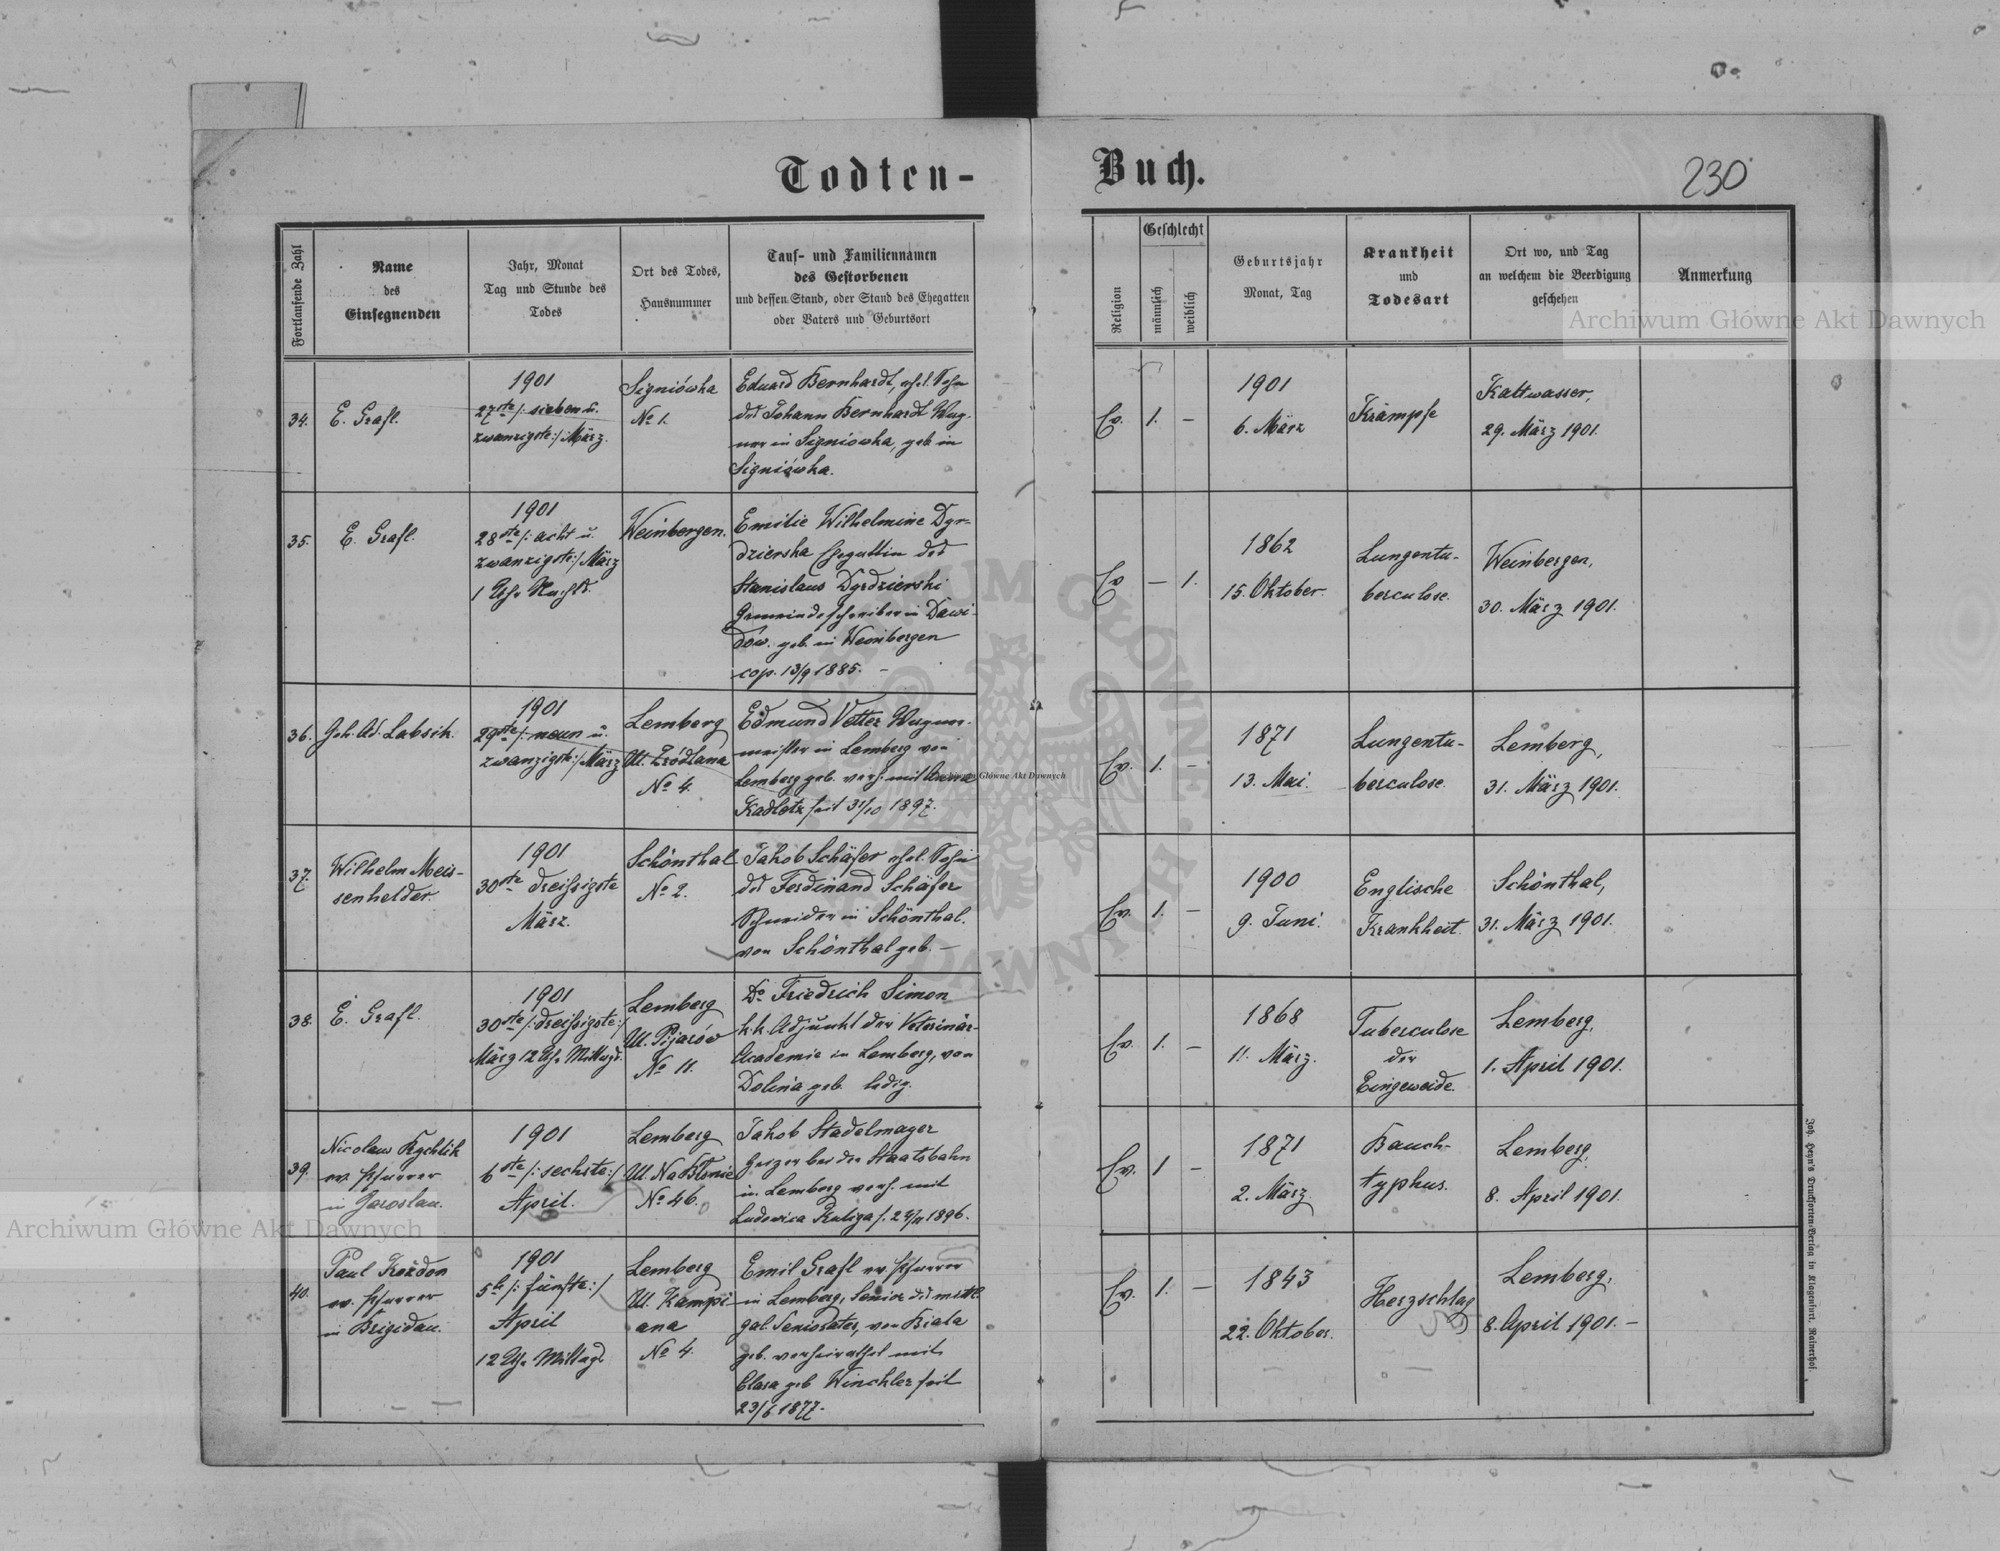 Todten-
Buch.
230
Fortlaufende Zahl
Name
des
Einsegnenden
Jahr, Monat
Tag und Stunde des
Todes
Ort des Todes,
Hausnummer
Tauf- und Familiennamen
des Gestorbenen
und dessen Stand, oder Stand des Ehegatten
oder Vaters und Geburtsort
Religion
Geschlecht
männlich
weiblich
Geburtsjahr
Monat, Tag
Krankheit
und
Todesart
Ort wo, und Tag
an welchem die Beerdigung
geschehen
Anmerkung
Archiwum Główne Akt Dawnych
34.
E. Grafl.
1901
27ste /: sieben u.
zwanzigste :/ März.
Signiówka
No 1.
Eduard Bernhardt, ehel. Sohn
des Johann Bernhardt Wag-
ner in Signiowka, geb. in
Signiówka.
Ev.
1.
–
1901
6. März
Krämpfe
Kaltwasser,
29. März 1901.
35.
E. Grafl.
1901
28ste /: acht u.
zwanzigste :/ März
1 Uhr Nachts.
Weinbergen.
Emilie Wilhelmine Dyr-
dzierska Ehegattin des
Stanislaus Dyrdzierski
Gemeindeschreiber in Dawi-
dów. geb. in Weinbergen
cop. 13/9 1885. –
Ev
–
1.
1862
15. Oktober.
Lungentu-
berculose.
Weinbergen,
30. März 1901.
36.
Joh. Ad. Labsik.
1901
29ste /: neun u.
zwanzigste :/ März
Lemberg
Ul. Źródlana
No 4.
Edmund Vetter Wagner-
meister in Lemberg von
Lemberg geb. verh. mit Anna
Kadletz seit 31/10 1897.
Ev.
1.
–
1871
13. Mai.
Lungentu-
berculose.
Lemberg,
31. März 1901.
Archiwum Główne Akt Dawnych
37.
Wilhelm Meis-
senhelder.
1901
30ste dreissigste
März.
Schönthal
No 2.
Jakob Schäfer ehel. Sohn
des Ferdinand Schäfer
Schneider in Schönthal.
von Schönthal geb. –
Ev.
1.
–
1900
9. Juni.
Englische
Krankheit.
Schönthal,
31. März 1901.
38.
E. Grafl.
1901
30ste /: dreissigste :/
März 12 Uhr Mittags.
Lemberg
Ul. Pijarów
No 11.
Dr Friedrich Simon
k.k. Adjunkt der Veterinär-
Academie in Lemberg, von
Dolina geb. ledig.
Ev.
1.
–
1868
11. März.
Tuberculose
der
Eingeweide.
Lemberg,
1. April 1901.
39.
Nicolaus Rychlik
ev. Pfarrer
in Jaroslau.
1901
6ste /: sechste :/
April.
Lemberg
Ul. Na Błonie
No 46.
Jakob Stadelmayer
Heizer bei der Staatsbahn
in Lemberg verh. mit
Ludowica Kuliga s. 1896.
Ev.
1
–
1871
2. März
Bauch-
typhus.
Lemberg,
8. April 1901.
40.
Paul Kożdon
ev. Pfarrer
in Brigidau.
1901
5te /: fünfte :/
April
12 Uhr Mittags
Lemberg
Ul. Kampi
ana
No 4.
Emil Grafl ev. Pfarrer
in Lemberg, Senior des mittl.
gal. Seniorates, von Biala
geb. verheirathet mit
Clara geb Winckler seit
23/6 1877.
Ev.
1.
–
1843
22. Oktober.
Herzschlag
Lemberg,
8. April 1901. –
Archiwum Główne Akt Dawnych
Joh. Heyn's Drucksorten-Verlag in Klagenfurt, Rainerhof.
ARCHIWUM GŁÓWNE AKT DAWNYCH